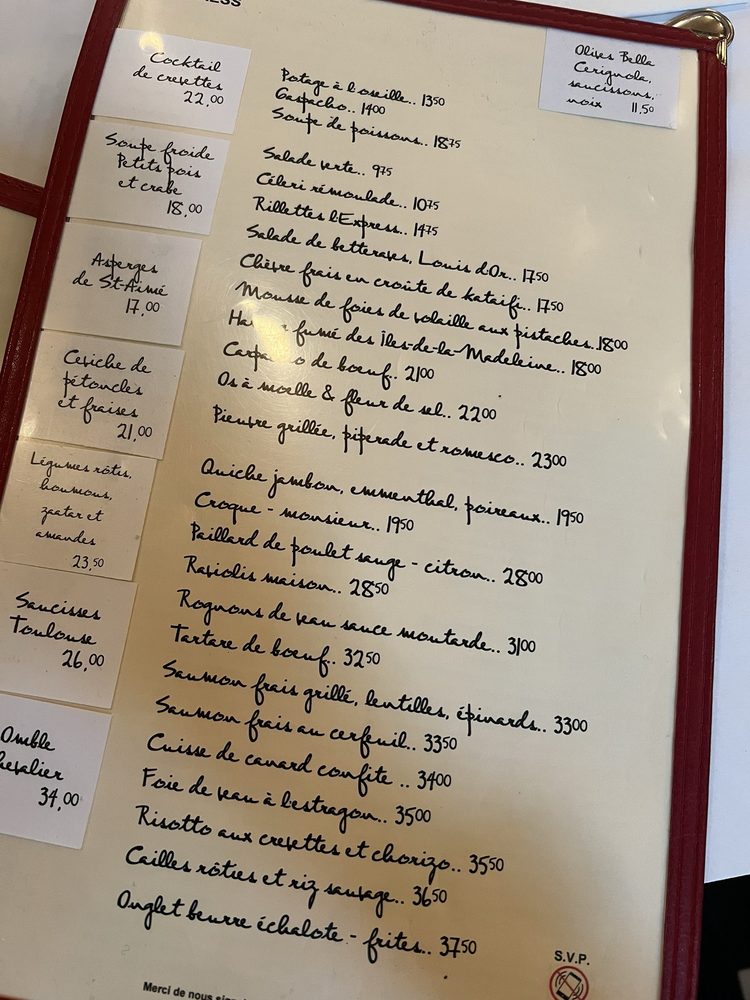 Cocktail
de crevettes
22,00
Soupe froide
Petits pois
et crabe
18,00
Asperges
de St-Aimé
17,00
Ceviche de
pétoncles
et fraises
21,00
Légumes rôtis,
houmous,
zaatar et
amandes
23,50
Saucisses
Toulouse
26,00
Omble
34,00
Olives Bella
Cerignola,
saucissons,
noix 11,50
Potage à l'oseille.. 1350
Gaspacho.. 1400
Soupe de poissons.. 1875
Salade verte.. 975
Céleri rémoulade.. 1075
Rillettes l'Express.. 1475
Salade de betteraves, Louis d'Or.. 1750
Chèvre frais en croûte de kataifi.. 1750
Mousse de foies de volaille aux pistaches..1800
fumé des Îles-de-la-Madeleine.. 1800
de boeuf.. 2100
Os à moelle & fleur de sel.. 2200
Pieuvre grillée, piperade et romesco.. 2300
Quiche jambon, emmenthal, poireaux.. 1950
Croque - monsieur.. 1950
Paillard de poulet sauge - citron.. 2800
Raviolis maison.. 2850
Rognons de veau sauce moutarde.. 3100
Tartare de boeuf.. 3250
Saumon frais grillé, lentilles, épinards.. 3300
Saumon frais au cerfeuil.. 3350
Cuisse de canard confite .. 3400
Foie de veau à l'estragon.. 3500
Risotto aux crevettes et chorizo.. 3550
Cailles rôties et riz sauvage.. 3650
Onglet beurre échalote - frites.. 3750
S.V.P.
Merci de nous